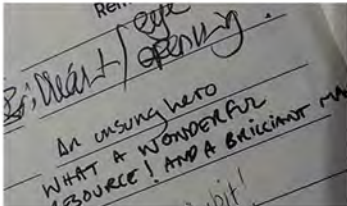 Rem
Brilliant / eye
opening.
An unsung hero
WHAT A WONDERFUL
RESOURCE! AND A BRILLIANT MA